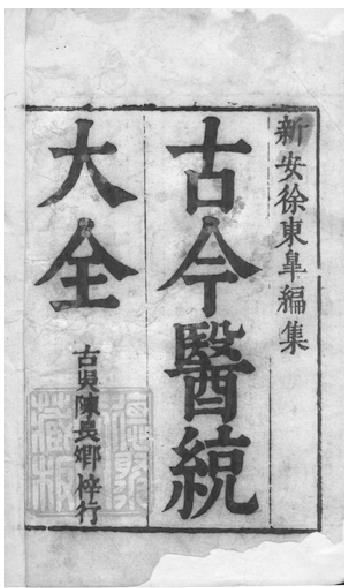 新安徐東臯編集
古今醫統
大全
古吳陳長卿梓行